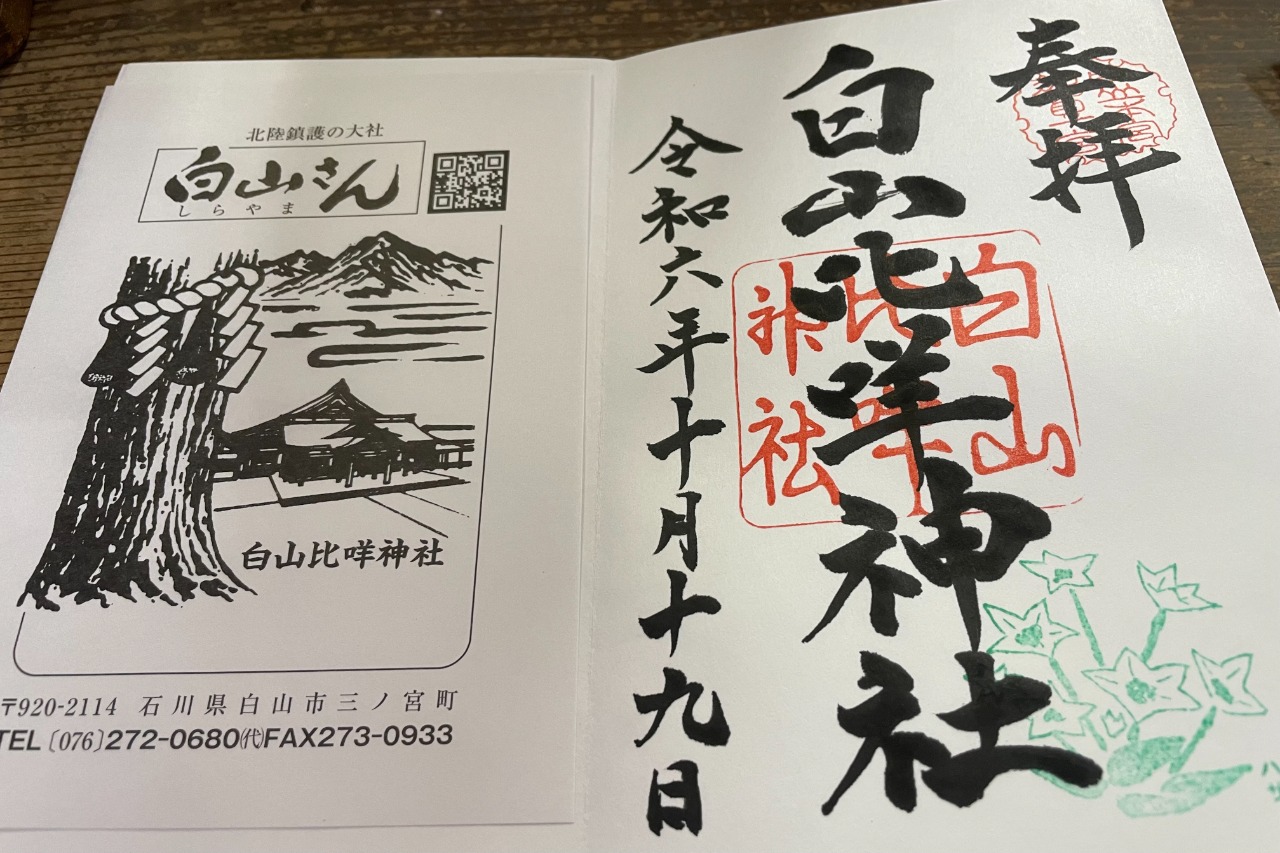 北陸鎮護の大社
白山さん
しらやま
白山比咩神社
〒920-2114 石川県白山市三ノ宮町
TEL〔076〕272-0680㈹FAX273-0933
奉拝
白山比咩神社
令和六年十月十九日
白山
比咩
神社